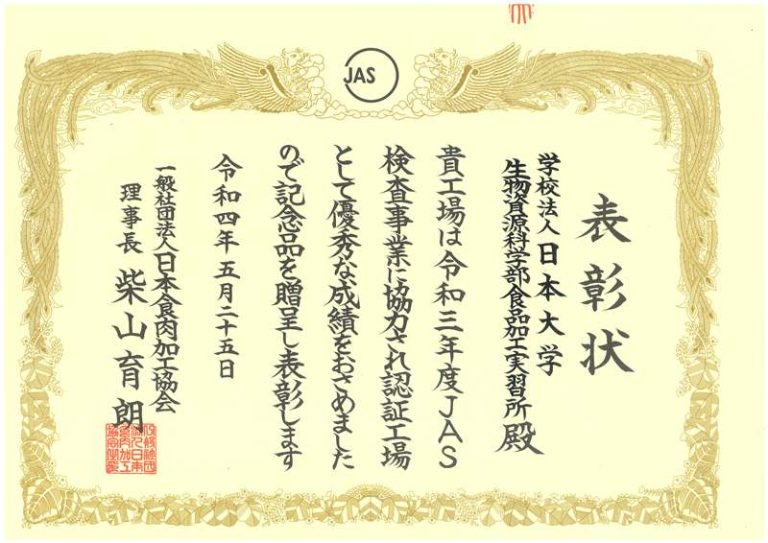 JAS
表彰状
学校法人日本大学
生物資源科学部食品加工実習所 殿
貴工場は令和三年度JAS
検査事業に協力され認証工場
として優秀な成績をおさめました
ので記念品を贈呈し表彰します
令和四年五月二十五日
一般社団法人日本食肉加工協会
理事長 柴山育朗